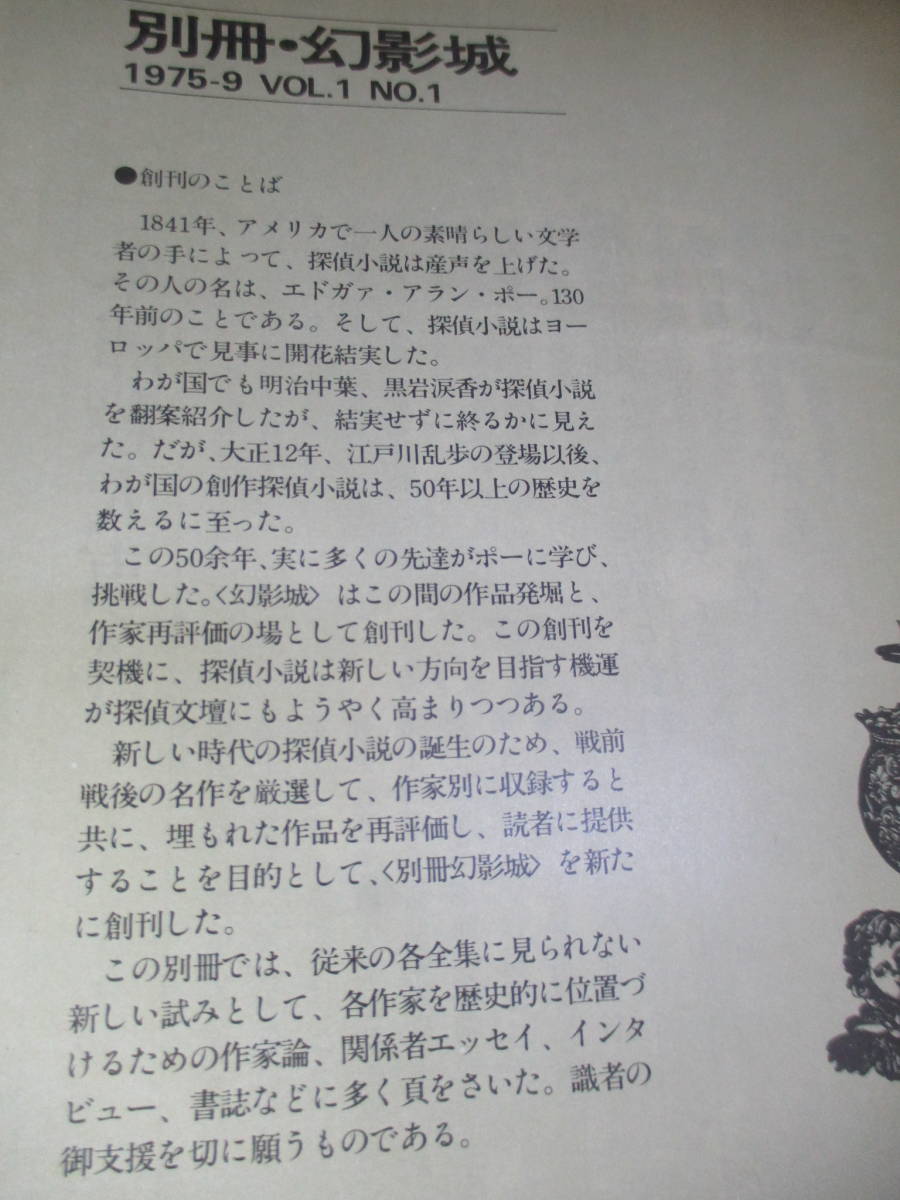 別冊・幻影城
1975-9 VOL.1 NO.1
●創刊のことば
1841年、アメリカで一人の素晴らしい文学
者の手によって、探偵小説は産声を上げた。
その人の名は、エドガァ・アラン・ポー。130
年前のことである。そして、探偵小説はヨー
ロッパで見事に開花結実した。
わが国でも明治中葉、黒岩涙香が探偵小説
を翻案紹介したが、結実せずに終るかに見え
た。だが、大正12年、江戸川乱歩の登場以後、
わが国の創作探偵小説は、50年以上の歴史を
数えるに至った。
この50余年、実に多くの先達がポーに学び、
挑戦した。〈幻影城〉はこの間の作品発掘と、
作家再評価の場として創刊した。この創刊を
契機に、探偵小説は新しい方向を目指す機運
が探偵文壇にもようやく高まりつつある。
新しい時代の探偵小説の誕生のため、戦前
戦後の名作を厳選して、作家別に収録すると
共に、埋もれた作品を再評価し、読者に提供
することを目的として、〈別冊幻影城〉を新た
に創刊した。
この別冊では、従来の各全集に見られない
新しい試みとして、各作家を歴史的に位置づ
けるための作家論、関係者エッセイ、インタ
ビュー、書誌などに多く頁をさいた。識者の
御支援を切に願うものである。